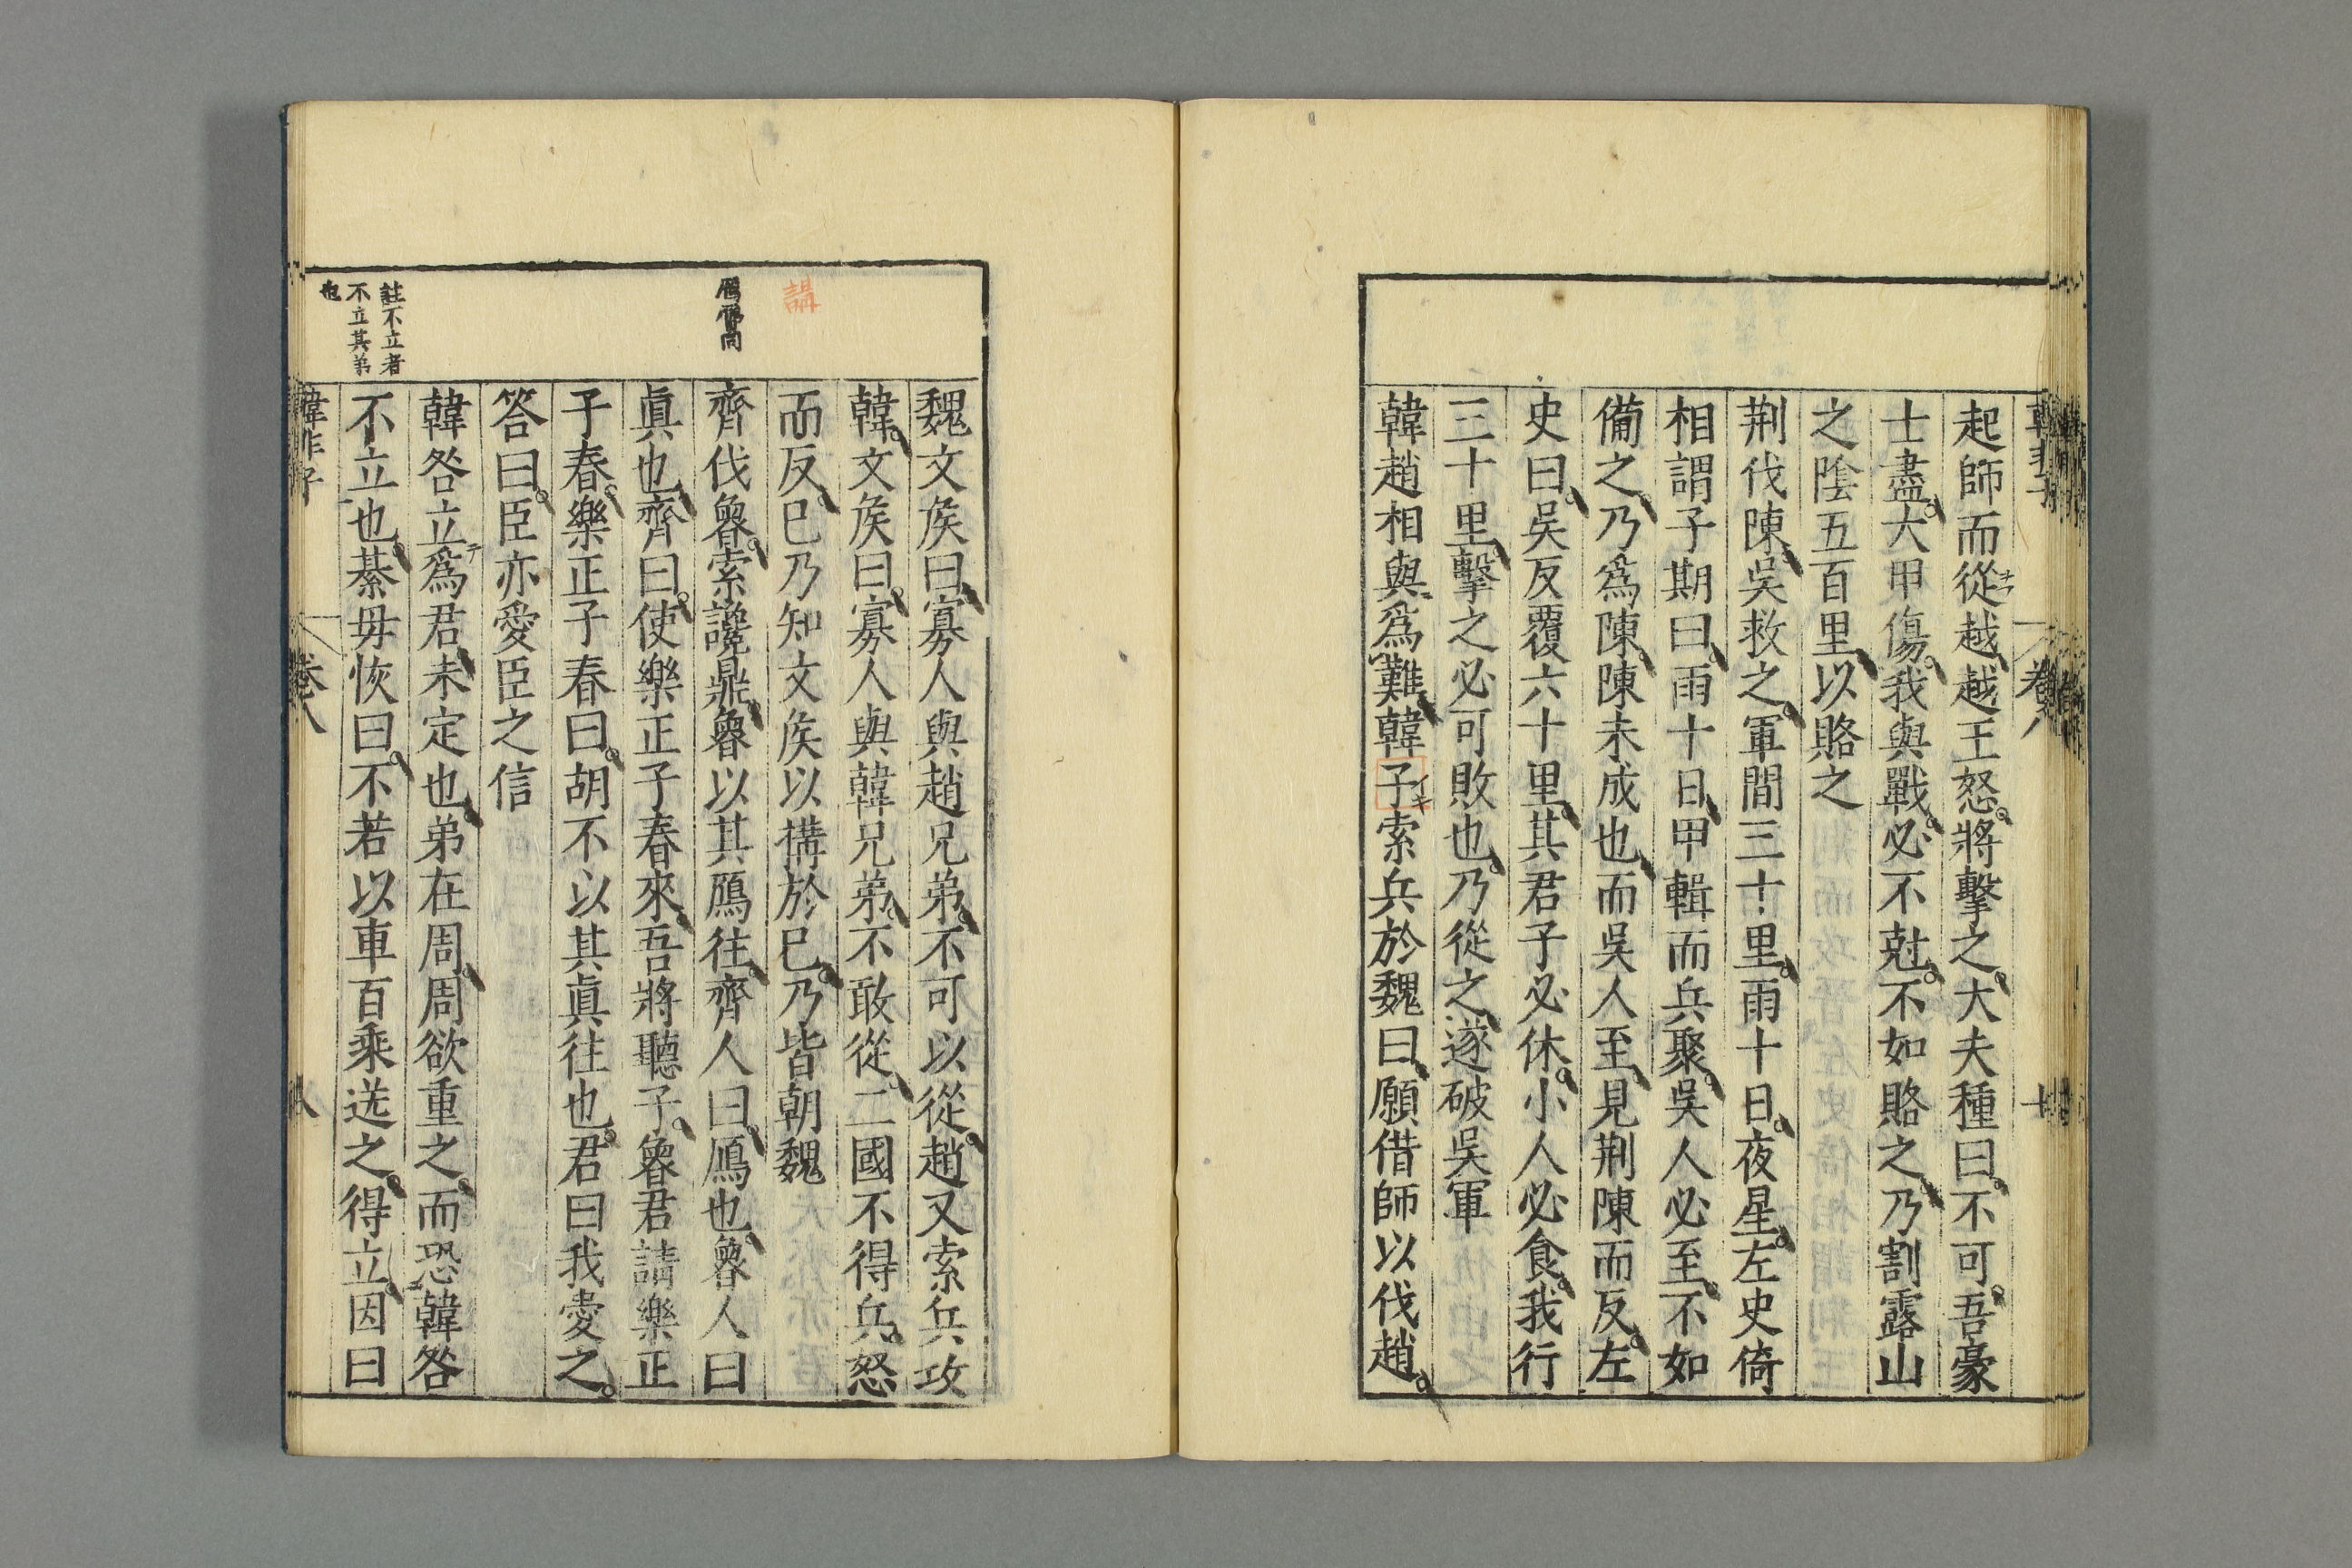 起師而從越越王怒將擊之大夫種曰不可吾豪
士盡大甲傷我與戰必不尅不如賂之乃割露山
之陰五百里以賂之
荆伐陳吳救之軍間三十里雨十日夜星左史倚
相謂子期曰雨十日甲輯而兵聚吳人必至不如
備之乃爲陳陳未成也而吳人至見荆陳而反左
史曰吳反覆六十里其君子必休小人必食我行
三十里擊之必可敗也乃從之遂破吳軍
韓趙相與爲難韓子索兵於魏曰願借師以伐趙
魏文矦曰寡人與趙兄弟不可以從趙又索兵攻
韓文矦曰寡人與韓兄弟不敢從二國不得兵怒
而反已乃知文矦以搆於已乃皆朝魏
齊伐魯索讒鼎魯以其鴈往齊人曰鴈也魯人曰
眞也齊曰使樂正子春來吾將聽子魯君請樂正
子春樂正子春曰胡不以其眞往也君曰我愛之
答曰臣亦愛臣之信
韓咎立爲君未定也弟在周周欲重之而恐韓咎
不立也綦毋恢曰不若以車百乘送之得立因曰
講
註不立者
不立其弟
也
韓非子 卷八